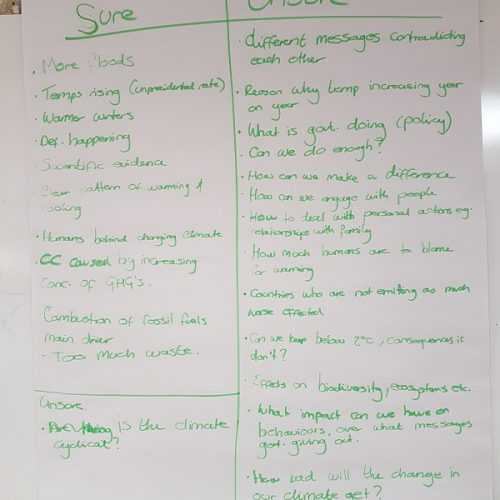 Sure
. More floods
. Temps rising (unprecidented rate)
. Warmer winters
. Def. happening
. Scientific evidence
. Clear pattern of warming &
cooling
. Humans behind changing climate
. CC caused by increasing
conc. of GHG's.
. Combustion of fossil fuels
main driver
. Too much waste.
Unsure.
. is the climate
cyclical?
Unsure
. different messages contradicting
each other
. Reason why temp increasing year
on year
. What is govt. doing (policy)
. Can we do enough?
. How can we make a difference
. How can we engage with people
. How to deal with personal actors eg.
relationships with family
. How much humans are to blame
for warming
. Countries who are not emitting as much
worse affected
. Can we keep below 2°c, consequences if
don't?
. Effects on biodiversity, ecosystems etc.
. What impact can we have on
behaviours, over what messages
govt. giving out.
. How bad will the change in
our climate get?